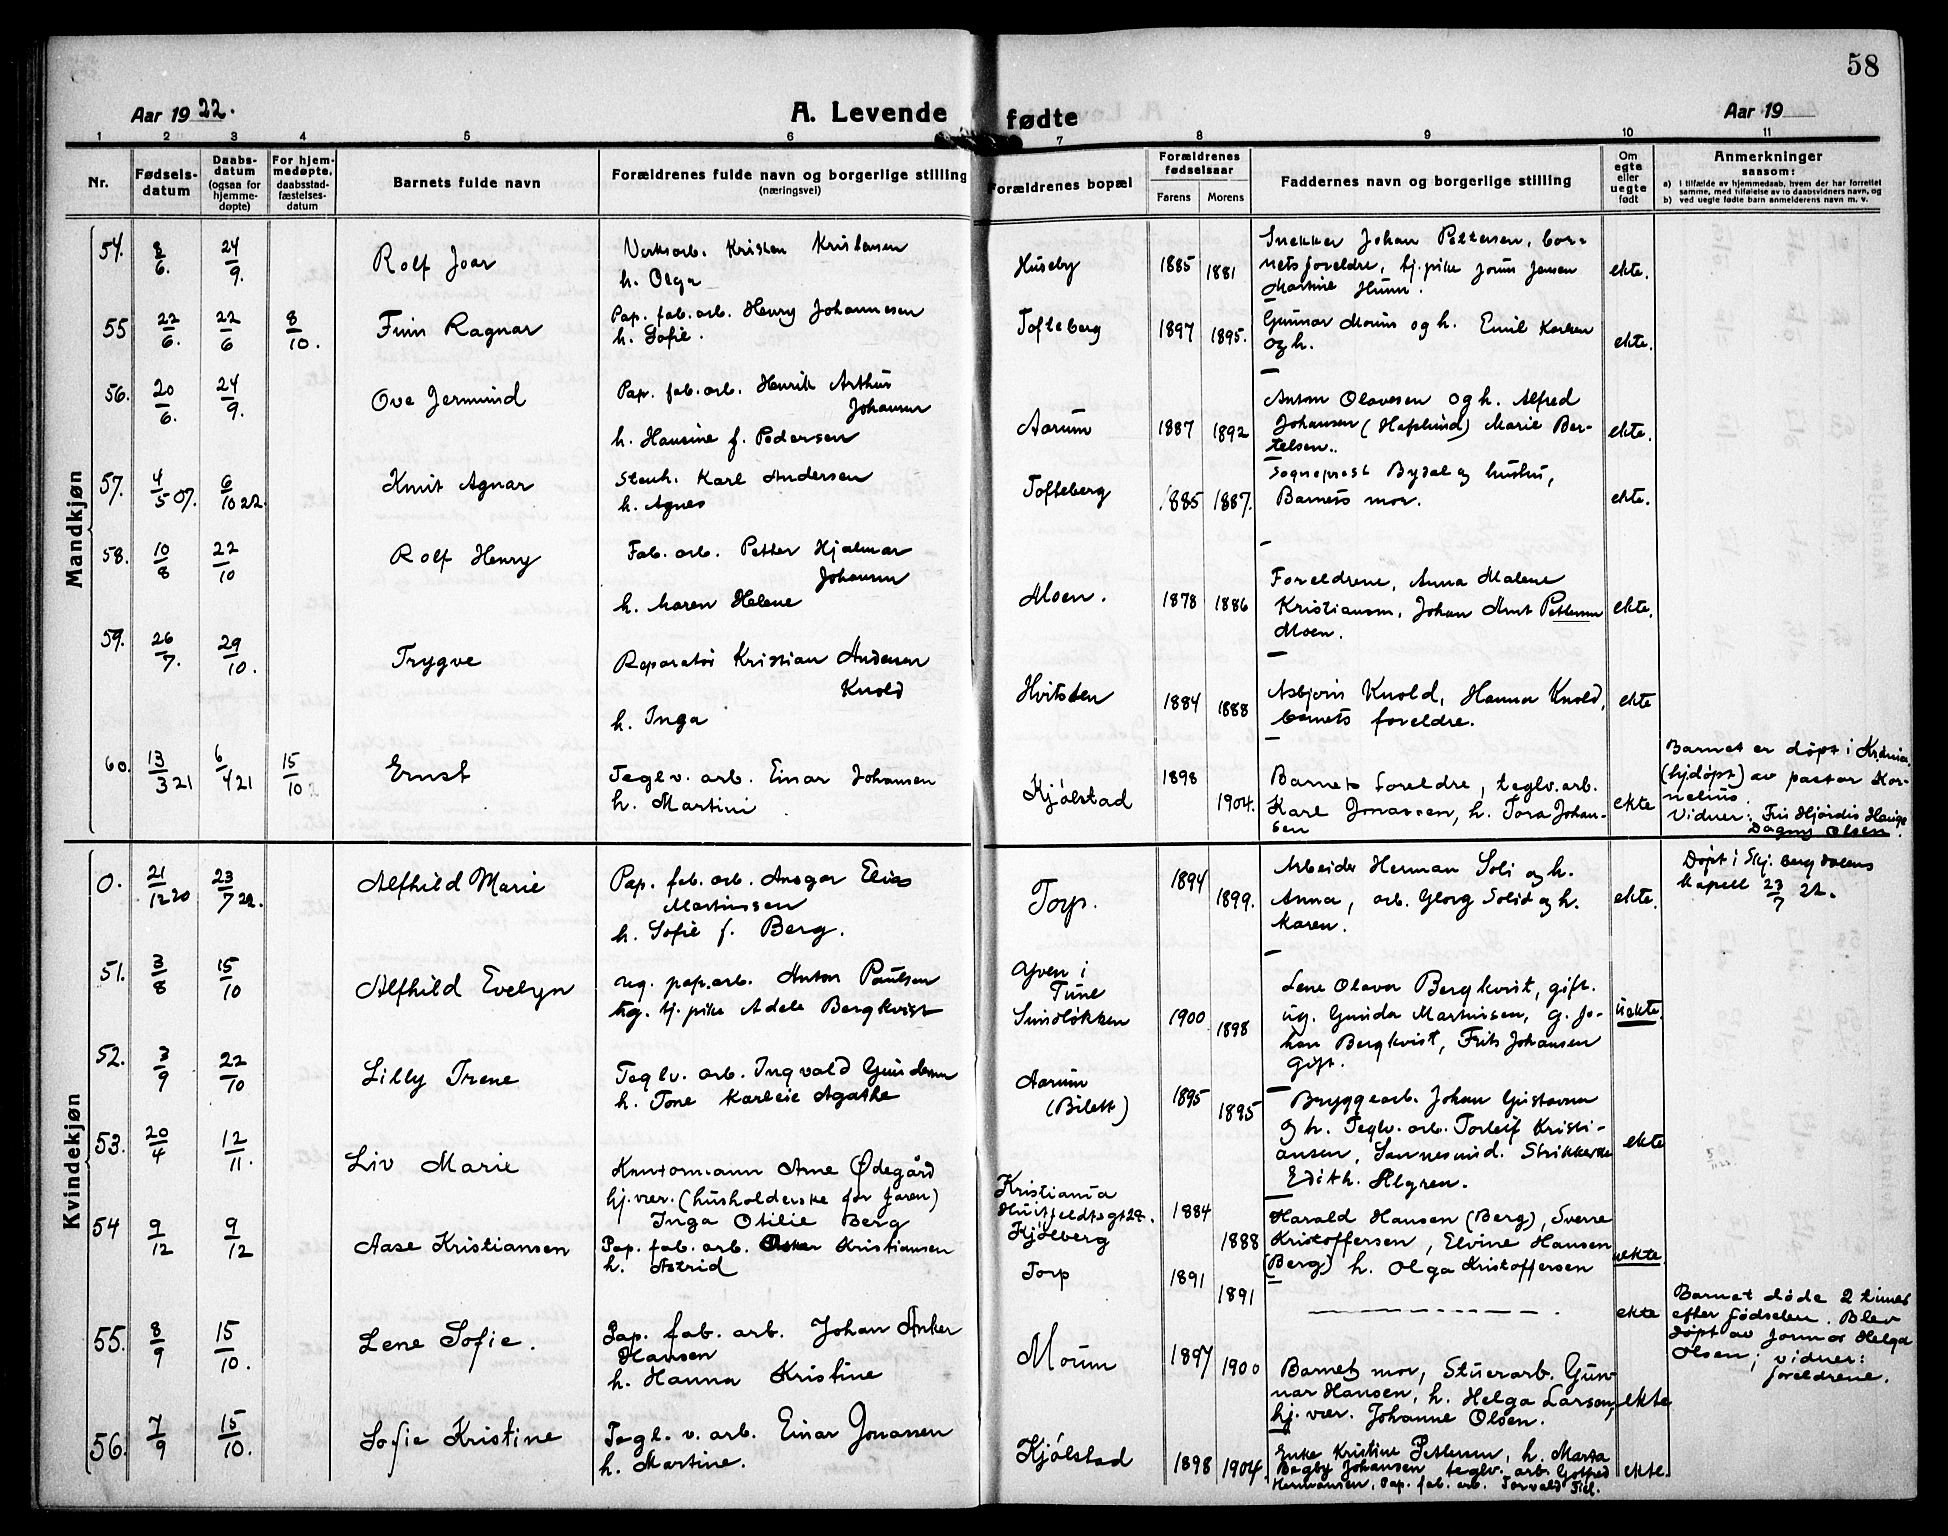 58
Aar 1922.
A. Levende fødte
Aar 19
1 2 3 4 5 6 7 8 9 10 11
Nr.
Fødsels-
datum
Daabs-
datum
(ogsaa for
hjemme-
døpte)
For hjem-
medøpte,
daabsstad-
fæstelses-
datum
Barnets fulde navn
Forældrenes fulde navn og borgerlige stilling
(næringsvei)
Forældrenes bopæl
Forældrenes
fødselsaar
Farens Morens
Faddernes navn og borgerlige stilling
Om
egte
eller
uegte
født
Anmerkninger
saasom:
a) i tilfælde av hjemmedaab, hvem der har forrettet
samme, med tilføielse av to daabsvidners navn, og
b) ved uegte fødte barn anmelderens navn m. v.
Mandkjøn
54. 8/6. 24/9. Rolf Joar
Verksarb. Kristen Kristensen
h. Olga
Huseby 1885 1881
Snekker Johan Pettersen, bar-
nets foreldre, hj. pike Jensen
Martine
ekte.
55 22/6. 22/6 8/10. Finn Ragnar
Pap. fab. arb. Henry Johannesen
h. Sofie.
Tofteberg 1897 1895.
Gunnar Moum og h. Emil Karlsen
og h.
ekte.
56. 20/6. 24/9. Ove Jermund
Pap. fab. arb. Henrik Arthur
Johansen
h. Hansine f. Pedersen
Aarum 1887 1892
Anton Olavesen og h. Alfred
Johansen (Hafslund) Marie Ber-
telsen.
ekte.
57. 4/5 07. 6/10 22. Knut Agnar
Stenh. Karl Andersen
h. Agnes
Tofteberg 1885 1887.
Sogneprest Bydal og hustru,
Barnets mor.
ekte.
58. 10/8 22/10 Rolf Henry
Fab. arb. Petter Hjalmar
Johansen
h. Maren Helene
Moen. 1878 1886
Foreldrene, Anna Malene
Kristiansen, Johan Pettersen
Moen.
ekte.
59. 26/7. 29/10. Trygve
Reparatør Kristian Andersen
Knold
h. Inga
Hvitsten 1884 1888
Asbjørn Knold, Hanna Knold,
barnets foreldre.
ekte
60. 13/3 21 6/4 21 15/10 Ernst
Teglv. arb. Einar Johansen
h. Martini
Kjølstad 1898 1904.
Barnets foreldre, teglv. arb.
Karl Jonassen, h. Tora Johan-
sen
ekte
Barnet er døpt i Kr.ania,
(hjdøpt) av pastor Kor-
nelius.
Vidner: Hjørdis
Dagny Olsen.
Kvindekjøn
0. 21/12 20 23/7 22. Alfhild Marie
Pap. fab. arb. Ansgar Elias
Martinssen
h. Sofie f. Berg.
Torp. 1894 1899.
Arbeider Herman Soli og h.
Anna, arb. Georg Solid og h.
Karen.
ekte.
Døpt i Skj. Bergdalens
kapell 23/7 22.
51. 3/8 15/10 Alfhild Evelyn
ug. pap. arb. Anton Paulsen
ug. hj. pike Adele Bergkvist
Yven i
Tune
Sundløkken 1900 1898
Lene Olava Bergkvist, gift.
ug. Gunda Martinssen, g. Jo-
han Bergkvist, Frits Johansen
gift.
uekte.
52. 3/9 22/10 Lilly Irene
Teglv. arb. Ingvald Gundersen
h. Tone Karleie Agathe
Aarum
(Bilett) 1895 1895
Bryggearb. Johan Gustavsen
og h. Teglv. arb. Torleif Kristi-
ansen, Sannesund. Strikkerske
Edith Algren.
ekte
53. 20/4 12/11. Liv Marie
Kontormann Arne Ødegård
hj. vær. (husholderske for faren)
Inga Otilie Berg
Kristiania
Huitfeldtsgt 22.
Kjøleberg 1884 1888
Harald Hansen (Berg), Sverre
Kristoffersen, Elvine Hansen
(Berg) h. Olga Kristoffersen
uekte.
54 9/12 9/12 Aase Kristiansen
Pap. fab. arb. Oskar Kristiansen
h. Astrid
Torp 1891 1891
ekte
Barnet døde 2 timer
efter fødselen. Blev
døpt av jormor Helga
Olsen; vidner:
foreldrene.
55. 8/9 15/10. Lene Sofie.
Pap. fab. arb. Johan Anker
Hansen
h. Hanna Kristine
Moum 1897 1900
Barnets mor, Stuerarb. Gun-
nar Hansen, h. Helga Larsen,
hj. vær. Johanne Olsen.
ekte
56. 7/9 15/10. Sofie Kristine
Tegl. v. arb. Einar Jonassen
h. Martine.
Kjølstad 1898 1904.
Enke Kristine Pettersen, h. Marta
Bagby Johansen, teglv. arb. Gotfred
Hermansen, Pap. fab. arb. Torvald
ekte.